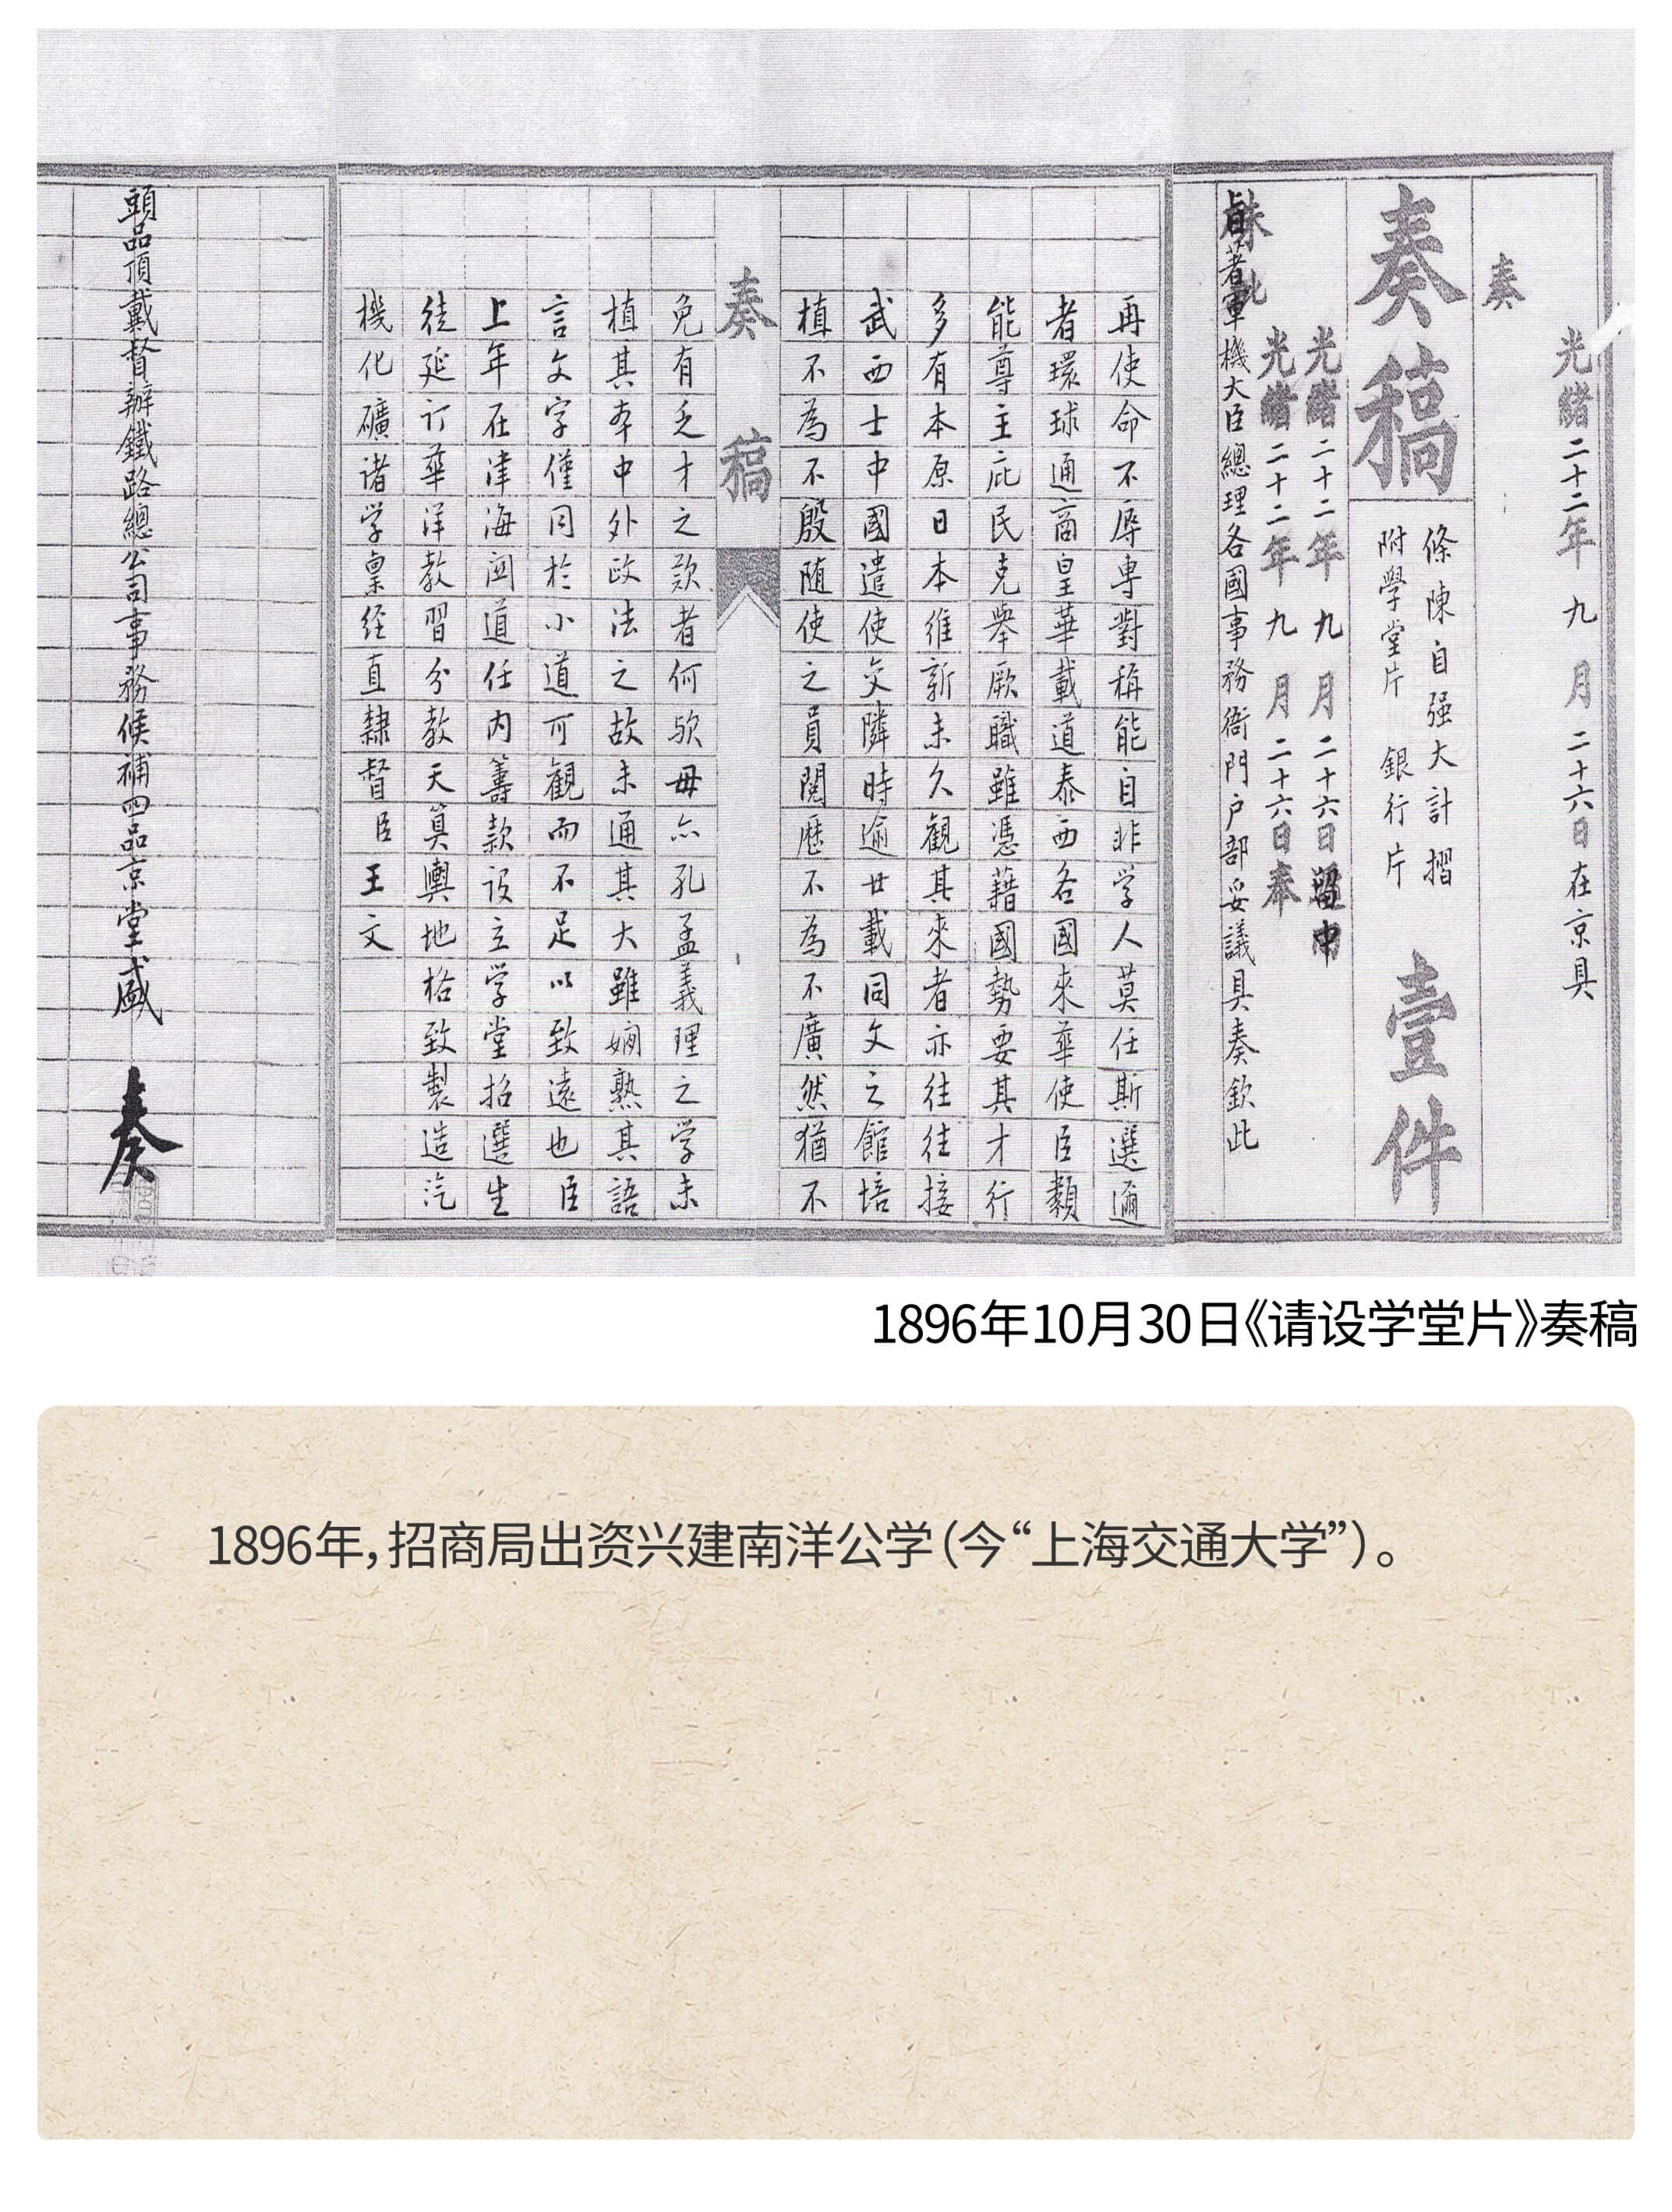 光緒二十二年九月二十六日在京具
奏
奏稿 壹件
條陳自强大計摺
附學堂片 銀行片
光緒二十二年九月二十六日留中
光緒二十二年九月二十六日奉
旨著軍機大臣總理各國事務衙門户部妥議具奏欽此
再使命不辱專對稱能自非学人莫任斯選邇
者環球通商皇華載道泰西各國來華使臣類
能尊主庇民克舉厥職雖憑藉國勢要其才行
多有本原日本維新未久觀其來者亦往往接
武西士中國遣使交隣時逾廿載同文之館培
植不為不殷随使之員閱歷不為不廣然猶不
奏稿
免有乏才之歎者何歟毋亦孔孟義理之学未
植其本中外政法之故未通其大雖嫻熟其語
言文字僅同於小道可觀而不足以致遠也臣
上年在津海関道任内籌款設立学堂招選生
徒延订華洋教習分教天算輿地格致製造汽
機化礦诸学稟经直隸督臣王文
頭品頂戴督辦鐵路總公司事務候補四品京堂盛 奏
1896年10月30日《请设学堂片》奏稿
1896年，招商局出资兴建南洋公学（今“上海交通大学”）。